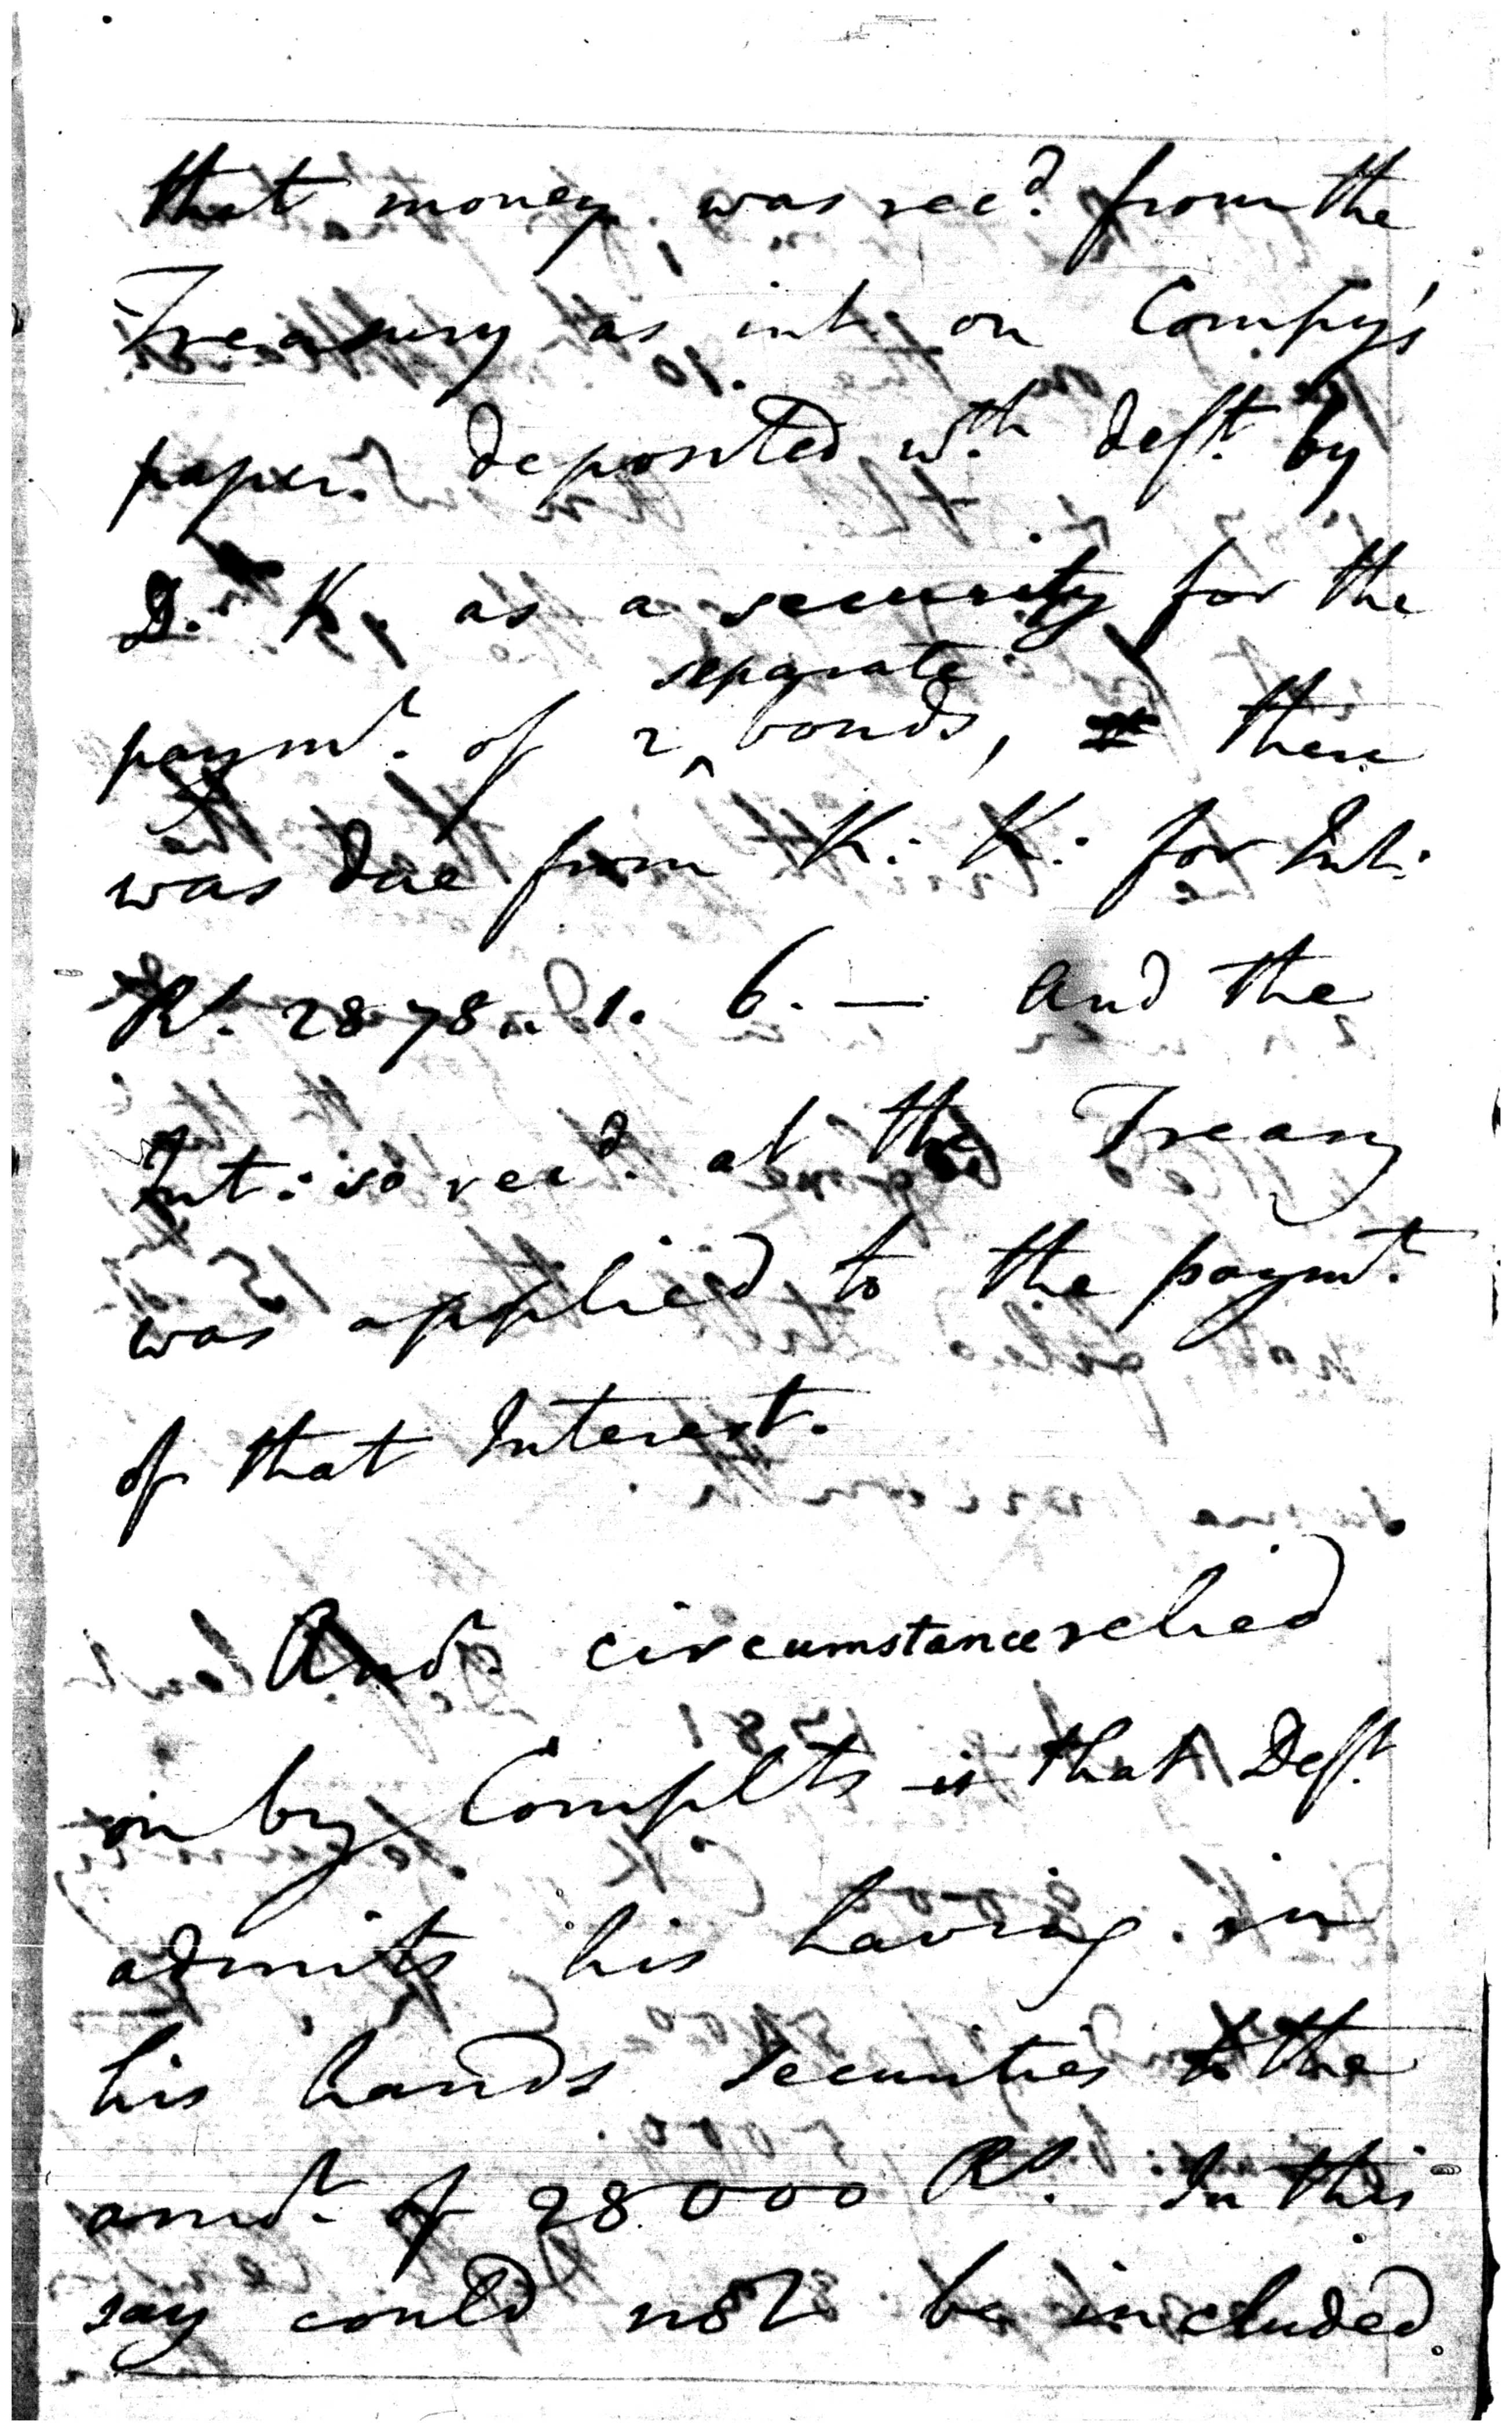 that money was rec.d from the
Treasury as int: on Compy's
paper deposited w.th deft. by
D. K. as a security for the
paymt. of 2 ^ separate bonds, there
was due from K: K: for Int:
Rs. 2878..1. 6. — And the
Int: so rec.d at the Treasy
was applied to the paymt.
of that Interest.
Anor. circumstance relied
on by Complts is that Deft
admits his having in
his hands securities to the
amot. of 28000 Rs. In this
say could not be included.